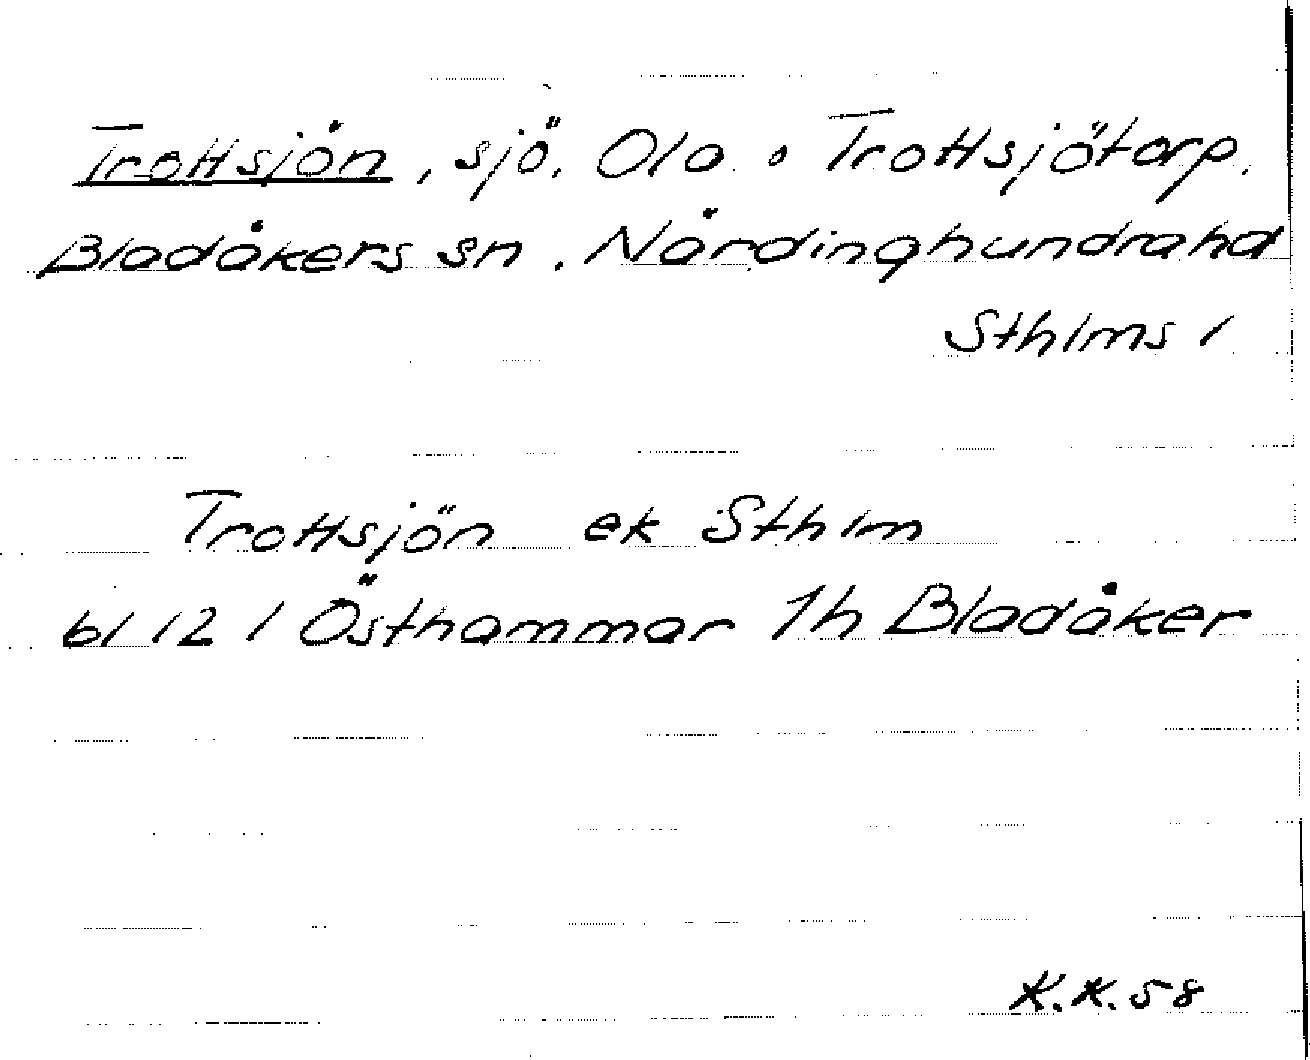 Trottsjön, sjö, Ola. o Trottsjötorp.
Bladåkers sn. Närdinghundra hd
Sthlms l
Trottsjön ek Sthlm
bl 12 l Östhammar 1h Bladåker
K.K. 58